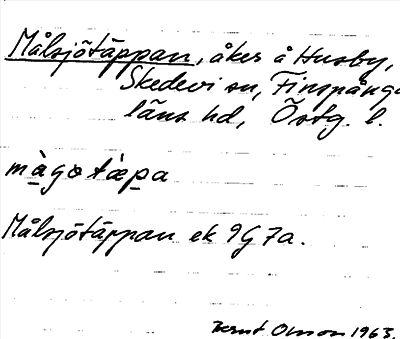 Målsjötäppan, åker å Husby,
Skedevi sn, Finspånga
läns hd, Östg. l.
màgøtæ̀pa
Målsjötäppan ek 9G7a.
Bernt Olsson 1963.